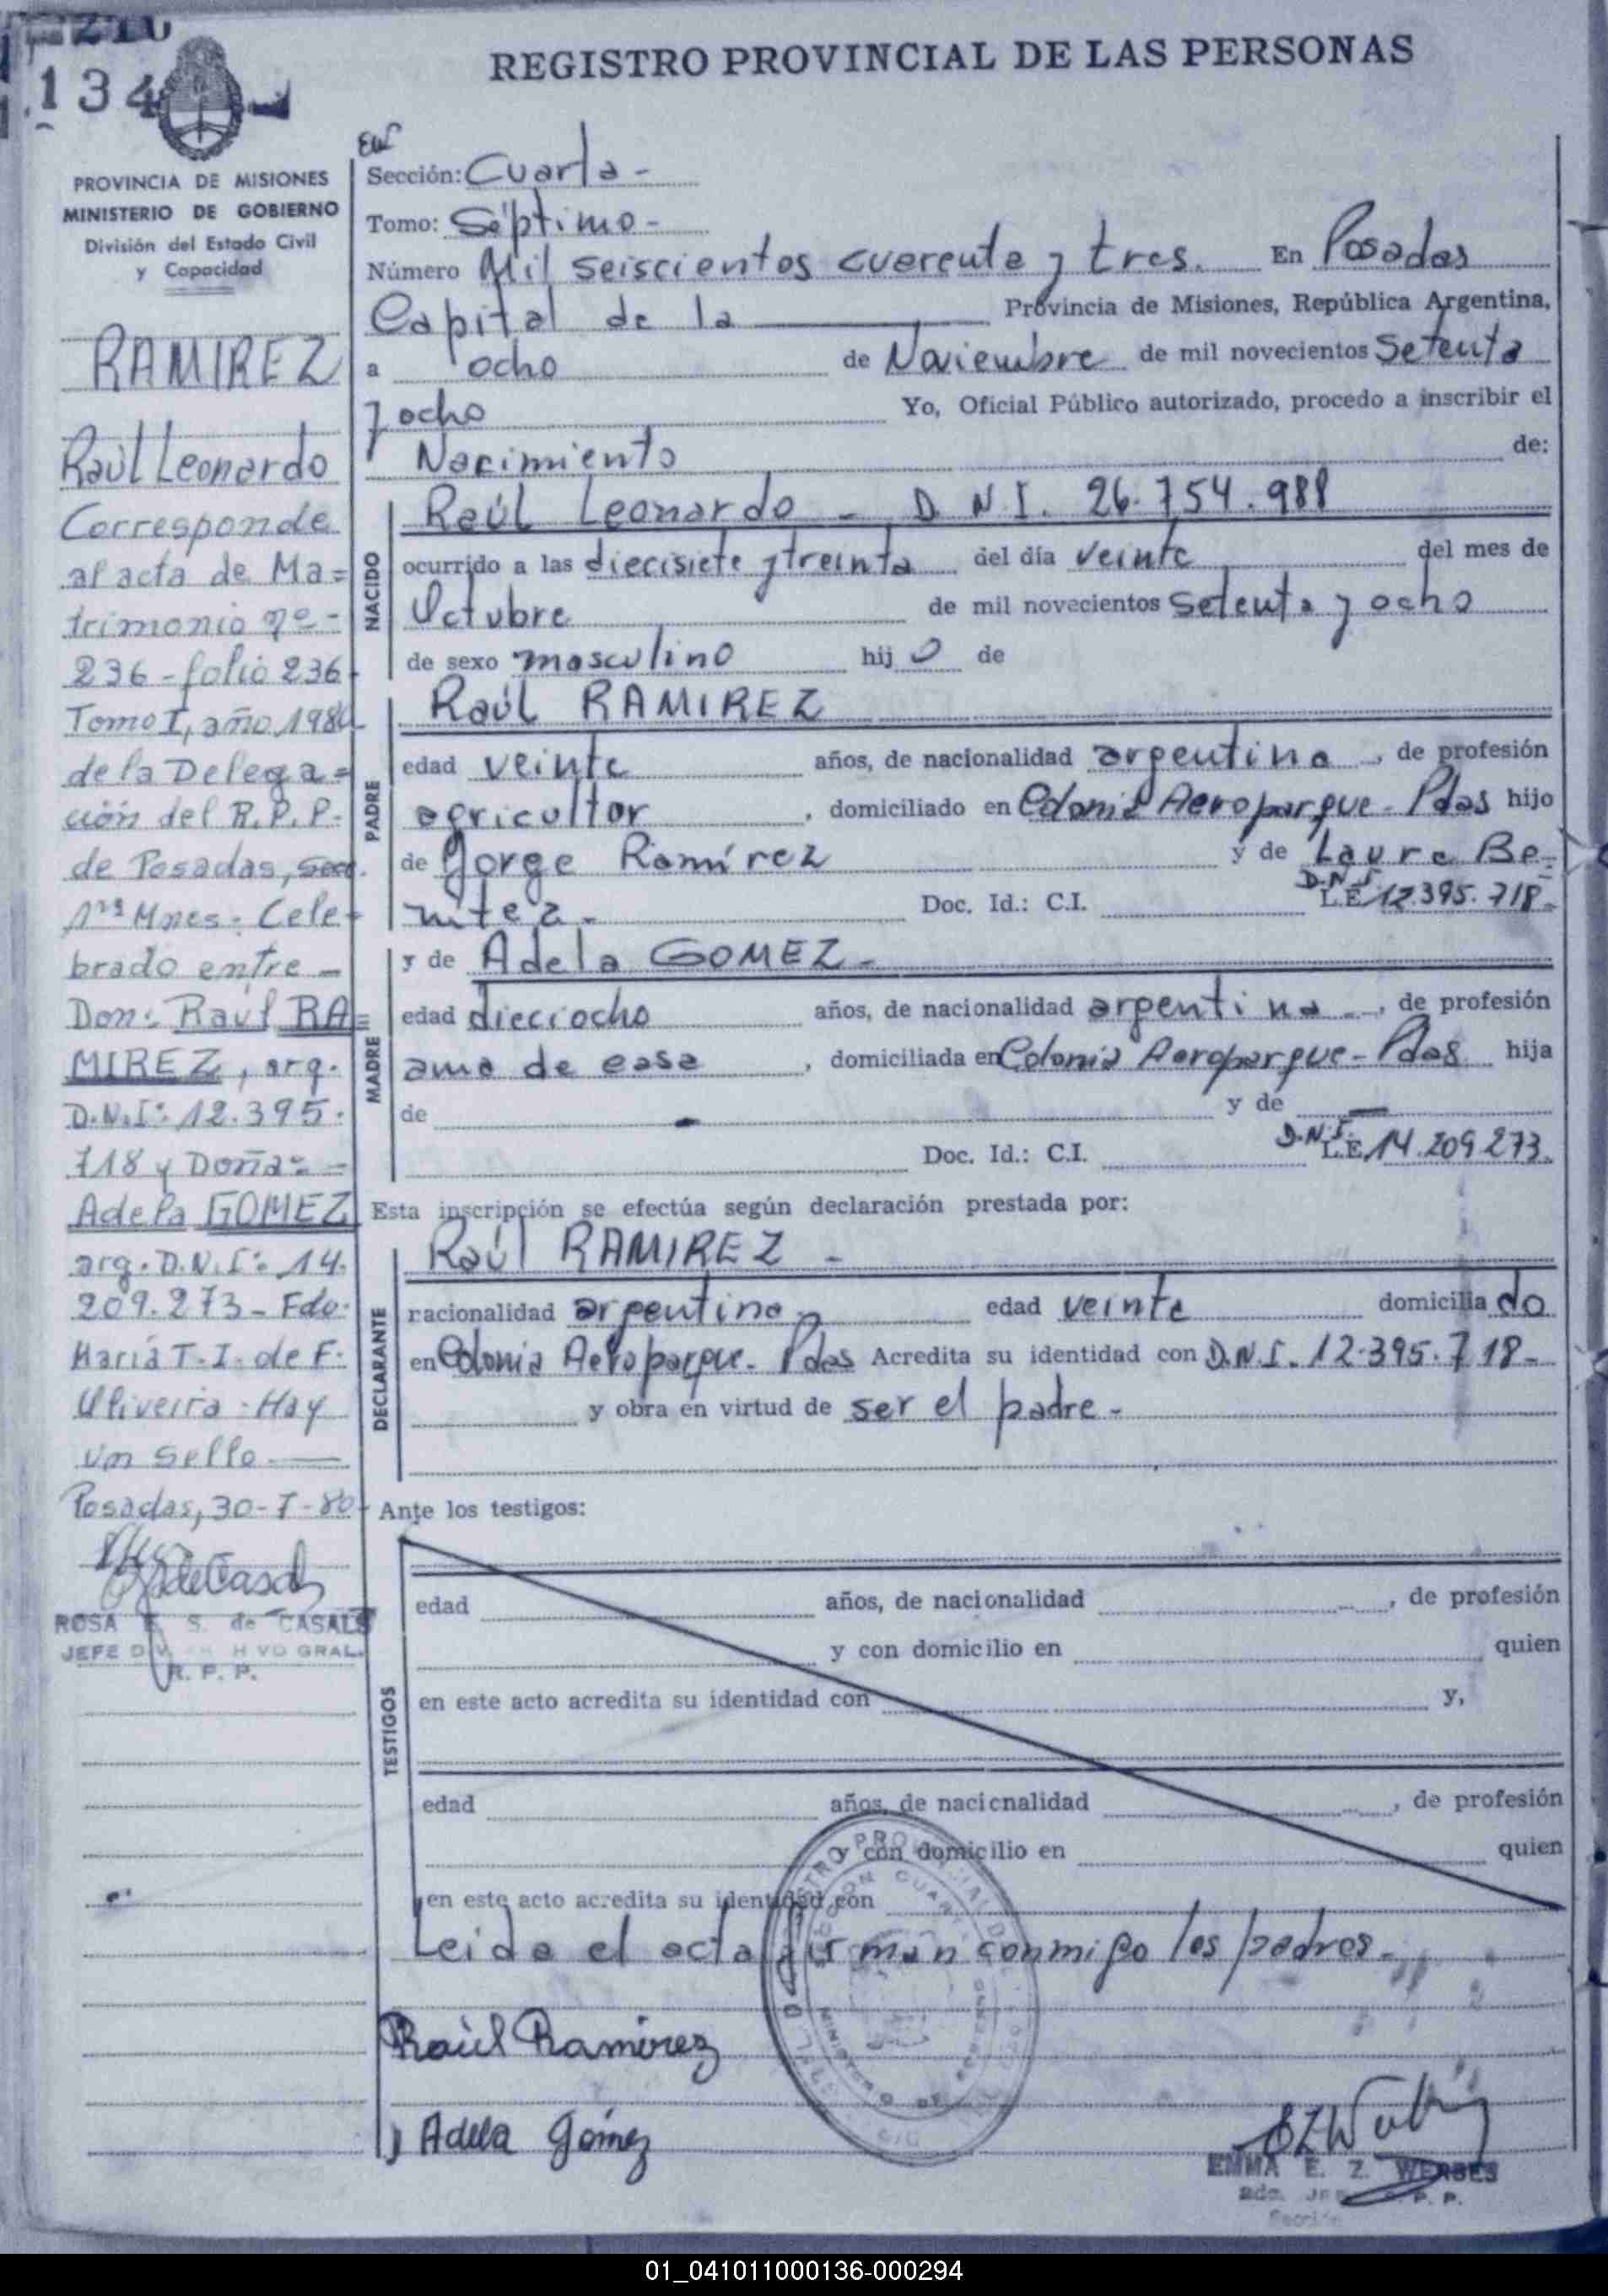 134
REGISTRO PROVINCIAL DE LAS PERSONAS
PROVINCIA DE MISIONES
MINISTERIO DE GOBIERNO
División del Estado Civil
y Capacidad
RAMIREZ
Raúl Leonardo
Corresponde
al acta de Ma=
trimonio nº-
236-folio 236-
Tomo I, año 1980
de la Delega=
ción del R.P.P.
de Posadas, Secc.
1ra Mnes. Cele-
brado entre-
Don: Raúl RA=
MIREZ, arg.
D.N.I: 12.395.
718 y Doña:-
Adela GOMEZ
arg. D.N.I: 14.
209.273- Fdo.
María T. I. de F.
Oliveira. Hay
un sello.
Posadas, 30-7-80
ROSA E. S. de CASALS
JEFE DIV. GRAL.
R. P. P.
Sección: Cuarta-
Tomo: Séptimo-
Número Mil seiscientos cuarenta y tres. En Posadas
Capital de la Provincia de Misiones, República Argentina,
a ocho de Noviembre de mil novecientos setenta
y ocho Yo, Oficial Público autorizado, procedo a inscribir el
Nacimiento de:
NACIDO
Raúl Leonardo - D.N.I. 26.754.988
ocurrido a las diecisiete y treinta del día veinte del mes de
Octubre de mil novecientos setenta y ocho
de sexo masculino hijo de
PADRE
Raúl RAMIREZ
edad veinte años, de nacionalidad argentina, de profesión
agricultor, domiciliado en Colonia Aeroparque- Pdas hijo
de Jorge Ramírez y de Laura Be-
nitez. Doc. Id.: C.I. D.N.I. L.E. 12.395.718-
MADRE
y de Adela GOMEZ-
edad dieciocho años, de nacionalidad argentina-, de profesión
ama de casa, domiciliada en Colonia Aeroparque- Pdas hija
de - y de -
Doc. Id.: C.I. D.N.I. L.E. 14.209.273.
Esta inscripción se efectúa según declaración prestada por:
DECLARANTE
Raúl RAMIREZ -
nacionalidad argentino edad veinte domiciliado
en Colonia Aeroparque- Pdas Acredita su identidad con D.N.I. 12.395.718-
y obra en virtud de ser el padre-
Ante los testigos:
TESTIGOS
edad años, de nacionalidad, de profesión
y con domicilio en quien
en este acto acredita su identidad con y,
edad años, de nacionalidad, de profesión
y con domicilio en quien
en este acto acredita su identidad con
Leida el acta firman conmigo los padres-
Raúl Ramírez
Adela Gómez
EMMA E. Z. WERBES
R. P. P.
01_041011000136-000294